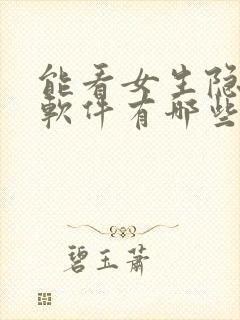 能看女生隐
軟件有哪些
碧玉萧